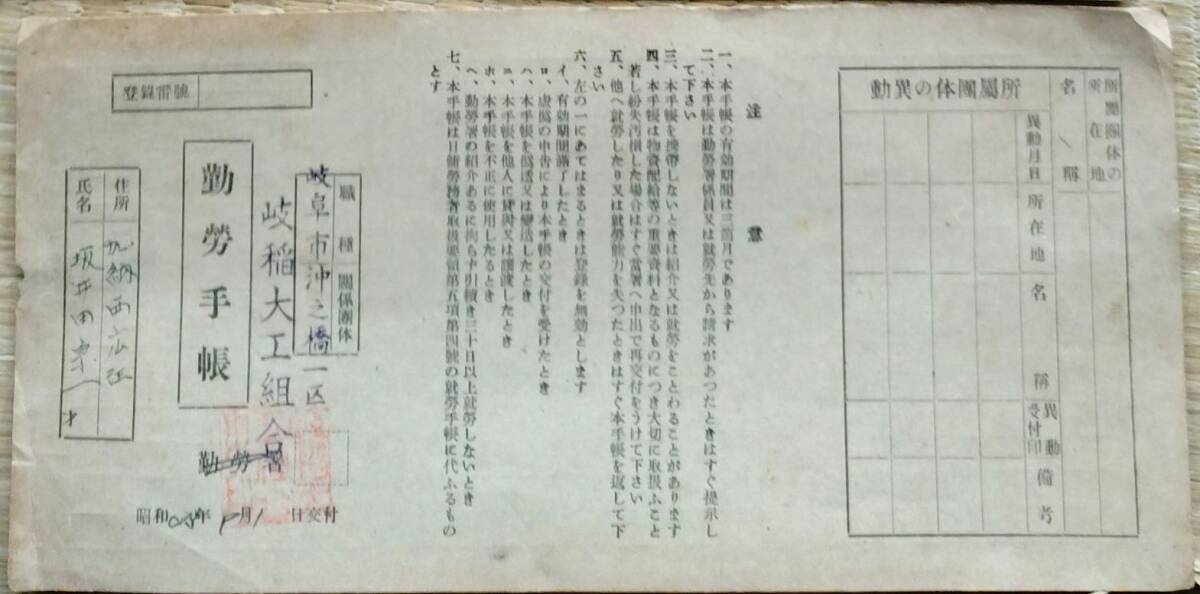 所屬團体の
所在地
名
稱
所屬團体の異動
異動月日
所在地
名稱
異動受付印
備考
注意
一、本手帳の有効期間は三箇月であります
二、本手帳は勤勞署係員又は就勞先から請求があつたときはすぐ提示し
て下さい
三、本手帳を携帶しないときは紹介又は就勞をことわることがあります
四、本手帳は物資配給等の重要資料となるものにつき大切に取扱ふこと
若し紛失汚損した場合はすぐ當署へ申出で再交付をうけて下さい
五、他へ就勞したり又は就勞能力を失つたときはすぐ本手帳を返して下
さい
六、左の一にあてはまるときは登錄を無効とします
イ、有効期間滿了したとき
ロ、虛僞の申吿により本手帳の交付を受けたとき
ハ、本手帳を僞造又は變造したとき
ニ、本手帳を他人に貸與又は讓渡したとき
ホ、本手帳を不正に使用したるとき
ヘ、勤勞署の紹介あるに拘らず引續き三十日以上就勞しないとき
七、本手帳は日傭勞務者取扱要領第五項第四號の就勞手帳に代ふるもの
とす
職種
關係團体
岐阜市沖之橋一区
岐稲大工組合
勤勞手帳
勤勞署
昭和 年 月 日交付
登錄番號
住所
加納西広江
氏名
坂井田